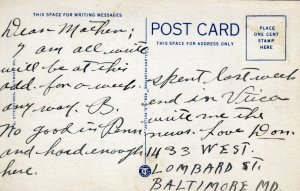 THIS SPACE FOR WRITING MESSAGES
POST CARD
THIS SPACE FOR ADDRESS ONLY
PLACE
ONE CENT
STAMP
HERE
Dear Mother;
I am all
will be at this
add. for a week
any way. B.
No good is Penn
and hard enough
here.
spent last week
end in Utica
write me the
news. Love Don.
1433 WEST.
LOMBARD ST.
BALTIMORE MD.